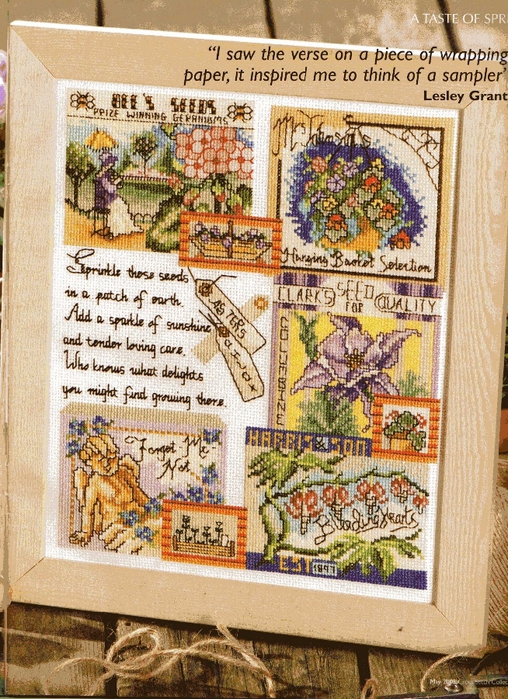 A TASTE OF SPR
“I saw the verse on a piece of wrapping
paper, it inspired me to think of a sampler”
Lesley Grant
BEE'S SEEDS
PRIZE WINNING GERANIUMS
Hanging Basket Selection
Sprinkle these seeds
in a patch of earth.
Add a sparkle of sunshine
and tender loving care.
Who knows what delights
you might find growing there.
ASTERS
PHLOX
CLARKS SEED
FOR QUALITY
COLUMBINE
Forget Me
Not
& SON
Bleeding Hearts
EST 1897